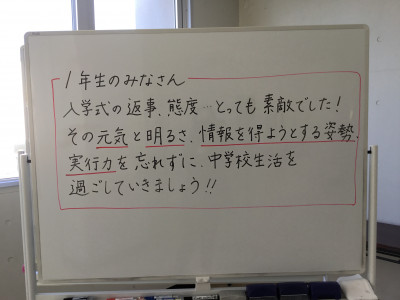 1年生のみなさん
入学式の返事、態度…とっても素敵でした！
その元気と明るさ、情報を得ようとする姿勢、
実行力を忘れずに、中学校生活を
過ごしていきましょう!!